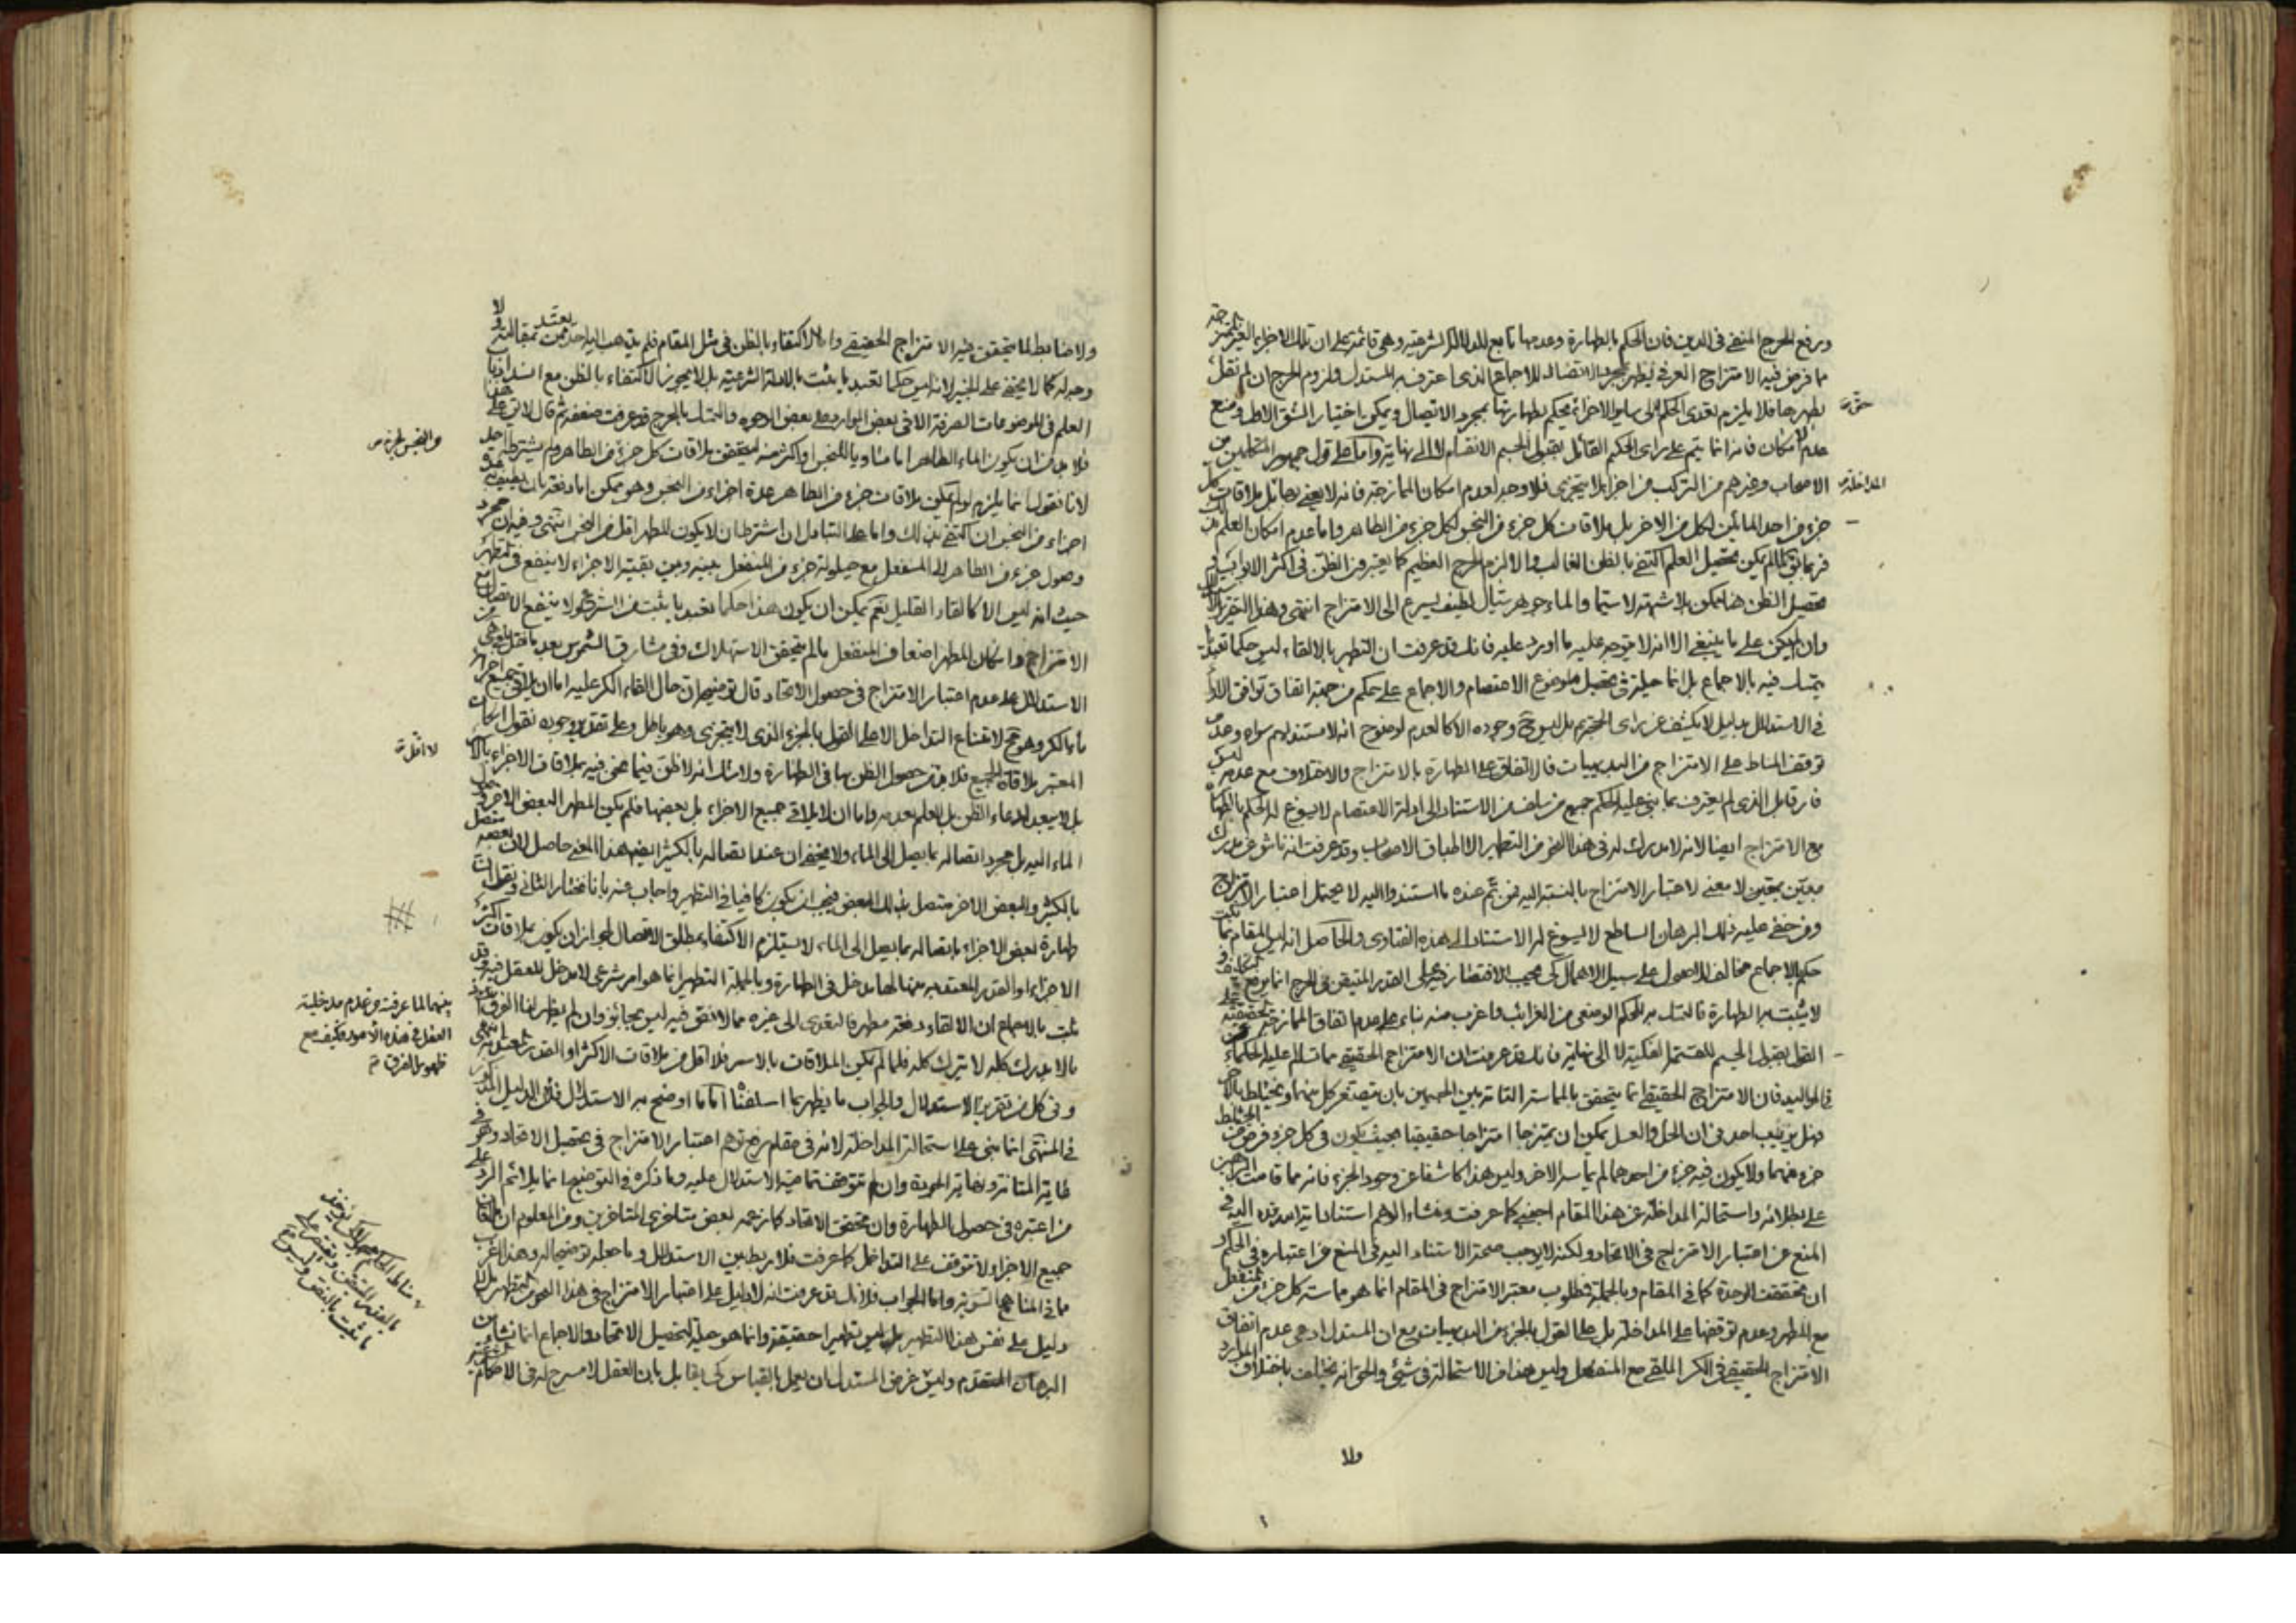 ورفع الحرج المنفي في الدين فان الحكم بالطهارة وعدمها تابع للدلالة الشرعية وهي قائمة على ان تلك الاجزاء الغير
مما فرض فيه الامتزاج العرفي يطهر بمجرد الاتصال للاجماع الذي اعترف به المستدل ولزوم الحرج ان لم نقل
بطهرها فلا يلزم تعدي الحكم الى ساير الاجزاء فيحكم بطهارتها بمجرد الاتصال ويمكن اختيار الشق الاول ومنع
عدم الامكان فانه انما يتم على راى الحكيم القائل بقبول الجسم الانقسام لا الى نهاية واما على قول جمهور المتكلمين من
الاصحاب وغيرهم من التركب من اجزاء لا يتجزى فلا وجه لعدم امكان الممازجة فانه لا يعني بها
جزء من احد المائين لكل من الاخر بل ملاقات كل جزء من النجس لكل جزء من الطاهر واما عدم امكان العلم
لم يمكن تحصيل العلم اكتفي بالظن الغالب والا لزم الحرج العظيم كما يعتبر من الظن في اكثر الابواب
تحصيل الظن هنا ممكن بلا شبهة لا سيما والماء جوهر سيال لطيف يسرع الى الامتزاج انتهى وهذا التقرير
وان لم يكن على ما ينبغي الا انه لا يتوجه عليه ما اورد عليه فانك قد عرفت ان التطهير بالالقاء ليس حكما تعبديا
يتمسك فيه بالاجماع بل انما حيلة في تحصيل موضوع الاعتصام والاجماع على حكم من جهة اتفاق توافق
في الاستدلال بدليل لا يكشف عن راى الحجة بل ليس وجوده الا كالعدم لوضوح انه لا مستند لهم سواه وعدم
توقف المناط على الامتزاج من البديهيات فالاتفاق على الطهارة بالامتزاج والاختلاف مع عدمه ليس
الذي لم يعترف بما بنى عليه الحكم جميع من سلف من الاستناد الى ادلة الاعتصام لا يسوغ له الحكم بالطهارة
مع الامتزاج ايضا لانه لا مدرك له في هذا النحو من التطهير الا اطباق الاصحاب وقد عرفت انه ناش عن مدرك
معين يقين لا معنى لاعتبار الامتزاج بالنسبة اليه فمن تم عنده ما استندوا اليه لا يحتمل اعتبار الامتزاج
ومن خفي عليه ذلك البرهان الساطع لا يسوغ له الاستناد الى هذه الفتاوى والحاصل انه ليس المقام مما
حكم الاجماع مخالف للاصول على سبيل الاهمال كي يجب الاقتصار فيه على القدر المتيقن فى الحرج انما يرفع
لا يثبت به الطهارة فالتمسك به للحكم الوضعي من الغرائب واغرب منه بناء على عدم اتفاق الممازجة الحقيقية
القول بقبول الجسم للقسمة الفكية لا الى نهاية فانك قد عرفت ان الامتزاج الحقيقي مما تسالم عليه الحكماء
في المواليد فان الامتزاج الحقيقي انما يتحقق بالمماسة التامة بين الجسمين بان يتصغر كل منهما ويختلط بالاخر
فهل يريب احد في ان الخل والعسل يمكن ان يمتزجا امتزاجا حقيقيا بحيث يكون في كل جزء فرض من المختلط
جزء منهما ولا يكون فيه جزء من احدهما لم يماسه الاخر وليس هذا كاشفا عن وجود الجزء فانه مما قامت البراهين
على بطلانه واستحالة المداخلة عن هذا المقام اجنبي كما عرفت ومنشاء الوهم استناد
المنع عن اعتبار الامتزاج في الاتحاد ولكنه لا يوجب صحة الاستناد اليه في المنع عن اعتباره في الحكم
ان تحققت الوحدة كما في المقام وبالجملة مطلوب معتبر الامتزاج في المقام انما هو مماسة كل جزء من المنفعل
مع المطهر وعدم توقفها على المداخلة بل على القول بالجزء من البديهيات مع ان المستدل ادعى عدم اتفاق
الامتزاج الحقيقي في الكر الملقي مع المنفعل وليس هذا من الاستحالة في شيء والحق انه يختلف باختلاف الموارد
المداخلة
ولا
ولا ضابط لما يتحقق فيه الامتزاج الحقيقي واما الاكتفاء بالظن في مثل المقام فلم يذهب اليه احد ممن يعتد بمقالته ولا
وجه له كما لا يخفى على الخبير لانه ليس حكما تعبديا يثبت بالادلة الشرعية بل لا يجوز الاكتفاء بالظن مع انسداد باب
العلم في الموضوعات الصرفة الا في بعض الموارد على بعض الوجوه والتمسك بالحرج قد عرفت ضعفه ثم قال لا يق على هذا
فلا بد من ان يكون الماء الطاهر اما مساويا للنجس او اكثر منه ليتحقق ملاقات كل جزء من الطاهر ولم يشترطه احد
لانا نقول انما يلزم لو لم يمكن ملاقات جزء من الطاهر عدة اجزاء من النجس وهو ممكن اما دفعة بان يطيف به عدة
اجزاء من النجس ان اكتفي بذلك واما على التبادل ان اشترط ان لا يكون المطهر اقل من النجس انتهى وفيه ان مجرد
وصول جزء من الطاهر الى المنفعل مع حيلولة جزء من المنفعل بينه وبين بقية الاجزاء لا ينفع في تطهيره
حيث انه ليس الا كالقاء القليل نعم يمكن ان يكون هذا حكما تعبديا يثبت من الشرع ولا ينفع الاتصال مع
الامتزاج وان كان المطهر اضعاف المنفعل ما لم يتحقق الاستهلاك وفي مشارق الشموس بعد ما نقل
الاستدلال على عدم اعتبار الامتزاج في حصول الاتحاد قال توضيحه ان حال القاء الكر عليه اما ان يلاقي جميع اجزائه
ماء الكر وهو مح لامتناع التداخل الا على القول بالجزء الذي لا يتجزى وهو باطل وعلى تقدير وجوده نقول ان كان
المعتبر ملاقاة الجميع فلا بد من حصول الظن بها في الطهارة ولا شك انه لا ظن فيما نحن فيه بملاقات الاجزاء بالاسر
بل لا يبعد ادعاء الظن بل العلم بعدمه واما ان لا يلاقي جميع الاجزاء بل بعضها فلم يكن المطهر للبعض الاخر وصول
الماء اليه بل مجرد اتصاله بما يصل الى الماء ولا يخفى ان عند اتصاله بالكثير ايضا هذا المعنى حاصل لان بعضه متصل
بالكثير والبعض الاخر متصل بذلك البعض فيجب ان يكون كافيا في التطهير واجاب عنه بانا نختار الثاني ونقول ان
طهارة بعض الاجزاء باتصاله بما يصل الى الماء لا يستلزم الاكتفاء بمطلق الاتصال لجواز ان يكون ملاقات اكثر
الاجزاء او القدر المعتد به منها لها مدخل في الطهارة وبالجملة التطهير انما هو امر شرعي لا مدخل للعقل فيه وقد
ثبت بالاجماع ان الالقاء دفعة مطهر فالتعدي الى غيره مما لا اتفق فيه ليس بجائز وان لم يظهر لنا الفرق
ما لا يدرك كله لا يترك كله فلما لم يكن الملاقات بالاسر فلا اقل من ملاقات الاكثر او القدر المعتد به انتهى
وفي كل من تقرير الاستدلال والجواب ما يظهر بما اسلفنا اما ما اوضح به الاستدلال فلان الدليل المذكور
في المنتهى انما بني على استحالة المداخلة لانه في مقام رفع توهم اعتبار الامتزاج في تحصيل الاتحاد وهو في
غاية المتانة ونهاية الجودة وان لم تتوقف تمامية الاستدلال عليه وما ذكره في التوضيح انما يلائم الرد على
من اعتبره في حصول الطهارة وان تحققت الاتحاد كما زعمه بعض متاخري المتاخرين ومن المعلوم ان ملاقات
جميع الاجزاء لا تتوقف على التداخل كما عرفت فلا ربط بين الاستدلال وما جعله توضيحا له وهذا اغرب
ما في المناهج السوية واما الجواب فلانك قد عرفت انه لا دليل على اعتبار الامتزاج في هذا النحو من التطهير بل لا
دليل على نفس هذا التطهير بل ليس تطهيرا حقيقة وانما هو حيلة لتحصيل الاتحاد والاجماع انما نشاء من
البرهان المتقدم وليس غرض المستدل ان يعمل بالقياس كي يقابل بان العقل لا مسرح له في الاحكام
بينهما لما عرفت من عدم مدخلية
العقل في هذه الامور فكيف مع
ظهور الفرق